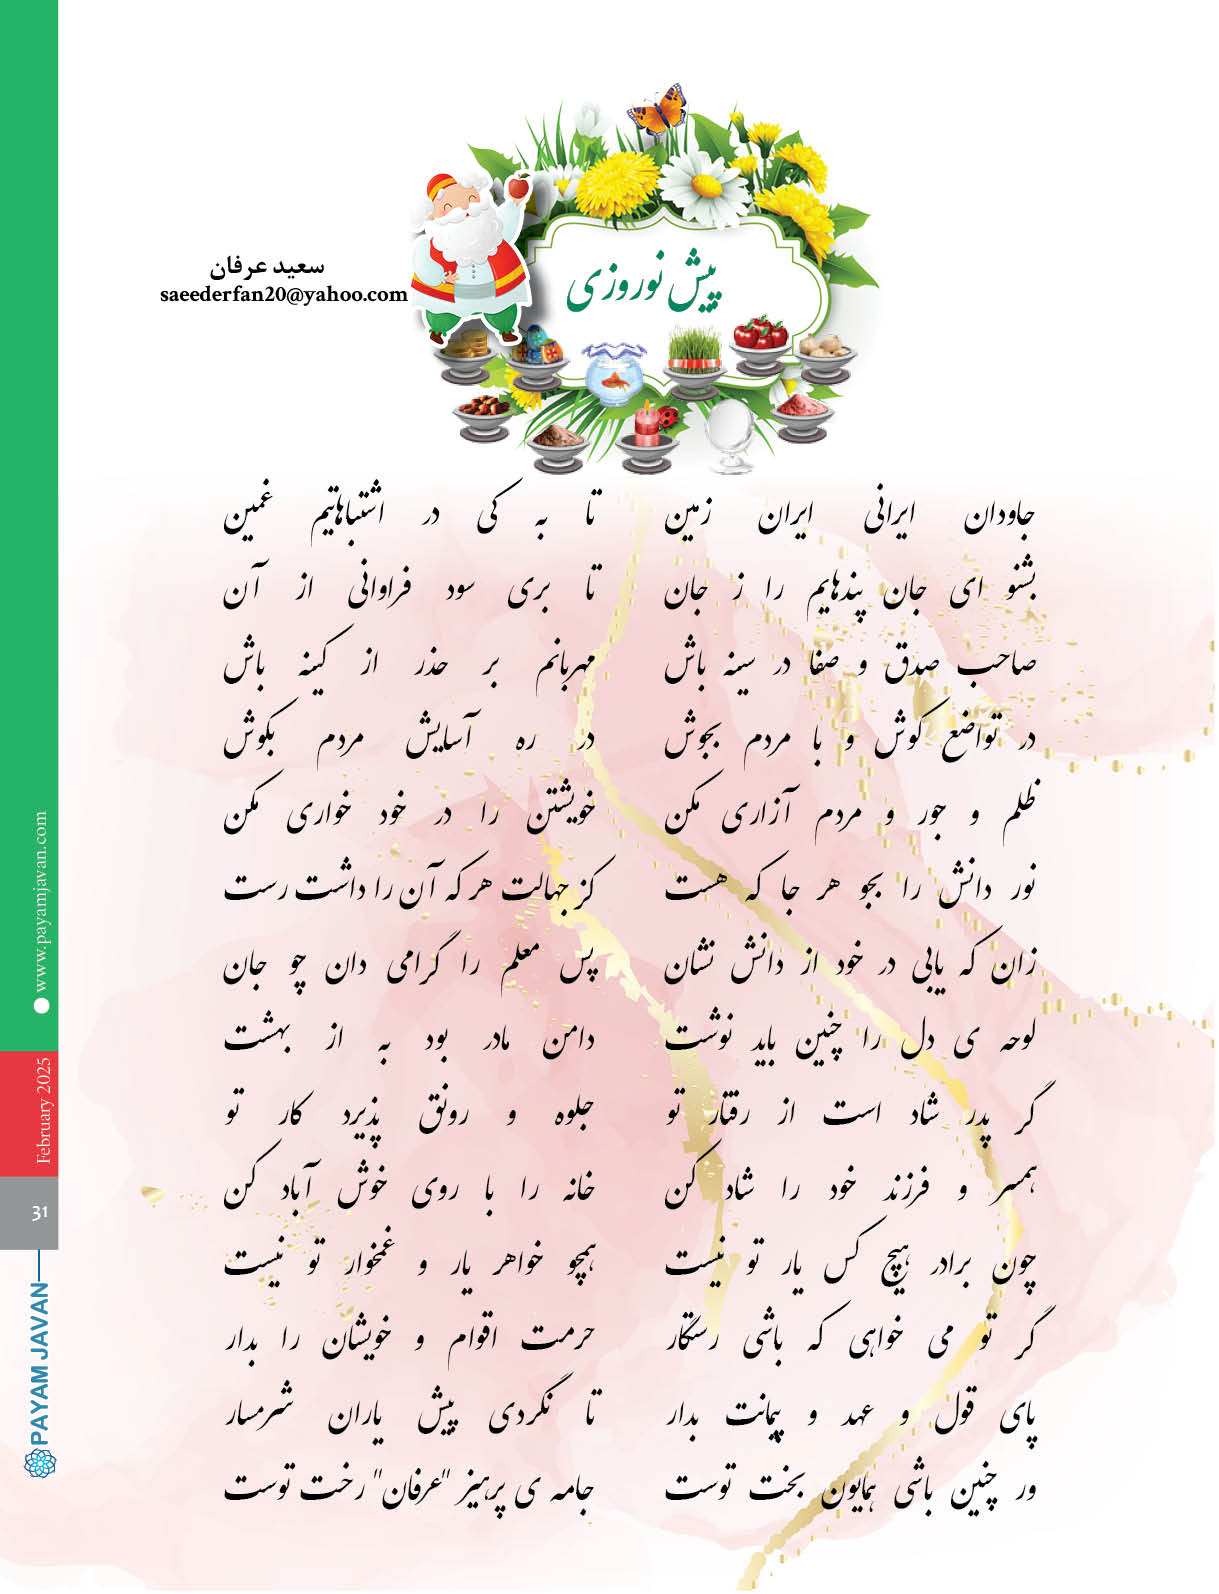 پیش نوروزی
سعید عرفان
saeederfan20@yahoo.com
جاودان ایرانی ایران زمین تا به کی در اشتباهاتیم غمین
بشنو ای جان پندهایم را ز جان تا بری سود فراوانی از آن
صاحب صدق و صفا در سینه باش مهربانم بر حذر از کینه باش
در تواضع کوش و با مردم بجوش در ره آسایش مردم بکوش
ظلم و جور و مردم آزاری مکن خویشتن را در خود خواری مکن
نور دانش را بجو هر جا که هست کز جهالت هر که آن را داشت رست
زان که یابی در خود از دانش نشان پس معلم را گرامی دان چو جان
لوحه ی دل را چنین باید نوشت دامن مادر بود به از بهشت
گر پدر شاد است از رفتار تو جلوه و رونق پذیرد کار تو
همسر و فرزند خود را شاد کن خانه را با روی خوش آباد کن
چون برادر هیچ کس یار تو نیست همچو خواهر یار و غمخوار تو نیست
گر تو می خواهی که باشی رستگار حرمت اقوام و خویشان را بدار
پای قول و عهد و پیمانت بدار تا نگردی پیش یاران شرمسار
ور چنین باشی همایون بخت توست جامه ی پرهیز "عرفان" رخت توست
www.payamjavan.com
February 2025
31
PAYAM JAVAN